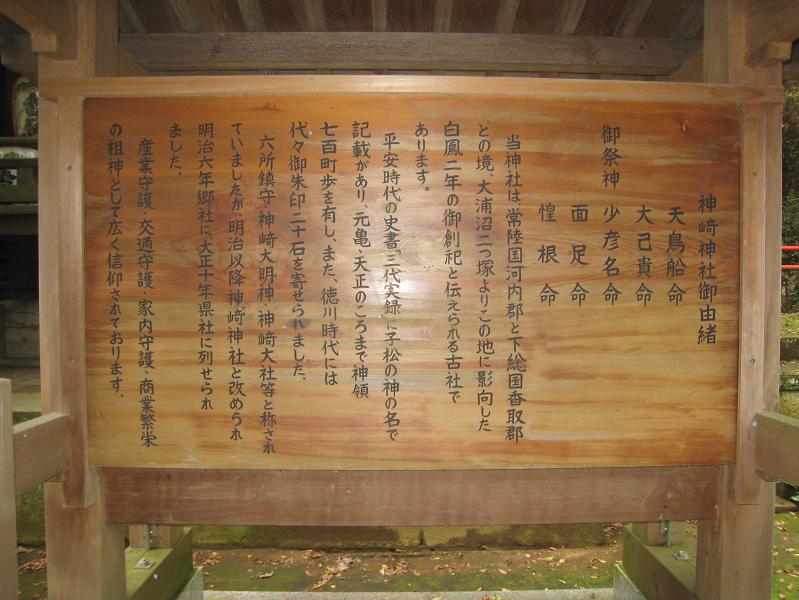 神﨑神社御由緒
天鳥船命
大己貴命
御祭神 少彦名命
面足命
惶根命
当神社は、常陸国河内郡と下総国香取郡
との境、大浦沼二つ塚よりこの地に影向した
白鳳二年の御創祀と伝えられる古社で
あります。
平安時代の史書「三代実録」に子松の神の名で
記載があり、元亀、天正のころまで神領
七百町歩を有し、また、徳川時代には
代々御朱印二十石を寄せられました、
六所鎮守・神﨑大明神・神﨑大社等と称され
ていましたが、明治以降神﨑神社と改められ
明治六年郷社に大正十年県社に列せられ
ました、
産業守護、交通守護、家内守護、商業繁栄
の祖神として広く信仰されております。